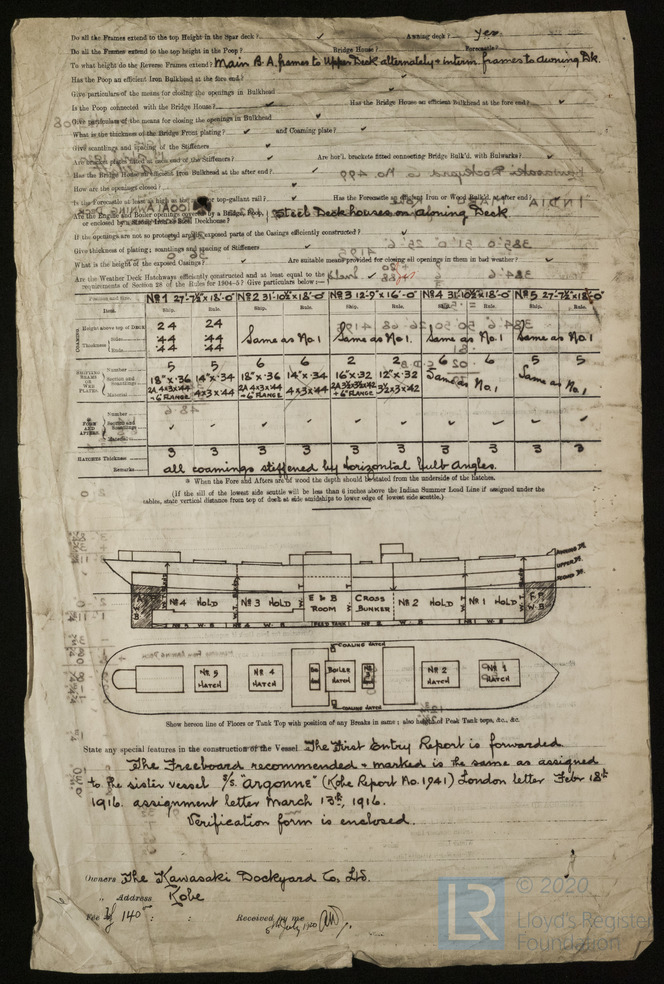 Do all the Frames extend to the top Height in the Spar deck? ✓ Awning deck? yes.
Do all the Frames extend to the top height in the Poop? Bridge House? Forecastle?
To what height do the Reverse Frames extend? Main B.A. frames to Upper Deck alternately + interm. frames to Awning Dk.
Has the Poop an efficient Iron Bulkhead at the fore end? ✓
Give particulars of the means for closing the openings in Bulkhead
Is the Poop connected with the Bridge House? ✓ Has the Bridge House an efficient Bulkhead at the fore end? ✓
Give particulars of the means for closing the openings in Bulkhead ✓
What is the thickness of the Bridge Front plating? ✓ and Coaming plate? ✓
Give scantlings and spacing of the Stiffeners ✓
Are bracket plates fitted at each end of the Stiffeners? ✓ Are hor'l. brackets fitted connecting Bridge Bulk'd. with Bulwarks? ✓
Has the Bridge House an efficient Iron Bulkhead at the after end? ✓
How are the openings closed? ✓
Is the Forecastle at least as high as the main or top-gallant rail? ✓ Has the Forecastle an efficient Iron or Wood Bulk'd. at after end?
Are the Engine and Boiler openings covered by a Bridge, Poop, or enclosed by a strong Iron or Steel Deckhouse? Steel Deckhouses on Awning Deck.
If the openings are not so protected are the exposed parts of the Casings efficiently constructed? ✓
Give thickness of plating; scantlings and spacing of Stiffeners ✓
What is the height of the exposed Casings? ✓ Are suitable means provided for closing all openings in them in bad weather? ✓
Are the Weather Deck Hatchways efficiently constructed and at least equal to the
requirements of Section 28 of the Rules for 1904-5? Give particulars below:—
Position and Size. Nº 1 27'-7½"×18'-0" Nº 2 31'-10½"×18'-0" Nº 3 12'-9"×16'-0" Nº 4 31'-10½"×18'-0" Nº 5 27'-7½"×18'-0"
Item. Ship. Rule. Ship. Rule. Ship. Rule. Ship. Rule. Ship. Rule.
COAMING Height above top of Deck 24 24
Thickness Sides ·44 ·44 Same as No. 1 Same as No. 1. Same as No. 1 Same as No. 1
Ends ·44 ·44
SHIFTING BEAMS OR WEB PLATES Number 5 5 6 6 2 2 6 6 5 5
Section and Scantlings 18"×·36 14"×·34 18"×·36 14"×·34 16"×·32 12"×·32 Same as No. 1 Same as No. 1
2A 4×3×·44 4×3×·44 2A 4×3×·44 4×3×·44 2A 3½×3½×·42 3½×3×·42
+ 6" FLANGE + 6" FLANGE + 6" FLANGE
* FORE AND AFTERS Number
Section and Scantlings ✓ ✓ ✓ ✓ ✓ ✓ ✓ ✓ ✓ ✓
Material
HATCHES Thickness 3 3 3 3 3 3 3 3 3 3
Remarks all coamings stiffened by horizontal bulb angles.
* When the Fore and Afters are of wood the depth should be stated from the underside of the hatches.
(If the sill of the lowest side scuttle will be less than 6 inches above the Indian Summer Load Line if assigned under the
tables, state vertical distance from top of deck at side amidships to lower edge of lowest side scuttle.)
AWNING DK.
UPPER DK.
SECOND DK.
Nº 4 HOLD Nº 3 HOLD E & B ROOM CROSS BUNKER Nº 2 HOLD Nº 1 HOLD F.P. W.B.
Nº 5 W.B. Nº 4 W.B. FEED TANK Nº 2 W.B. Nº 1 W.B.
COALING HATCH
Nº 5 HATCH Nº 4 HATCH BOILER HATCH Nº 2 HATCH Nº 1 HATCH
COALING HATCH
Show hereon line of Floors or Tank Top with position of any Breaks in same; also height of Peak Tank tops, &c., &c.
State any special features in the construction of the Vessel The First Entry Report is forwarded.
The Freeboard recommended + marked is the same as assigned
to the sister vessel S/S. "Argonne" (Kobe Report No. 1941) London letter Febr 18th
1916. assignment letter March 13th, 1916.
Verification form is enclosed.
Owners The Kawasaki Dockyard Co. Ltd.
" Address Kobe
Fee 140 : : Received by me
6th July 1920
© 2020
LR
Lloyd's Register
Foundation